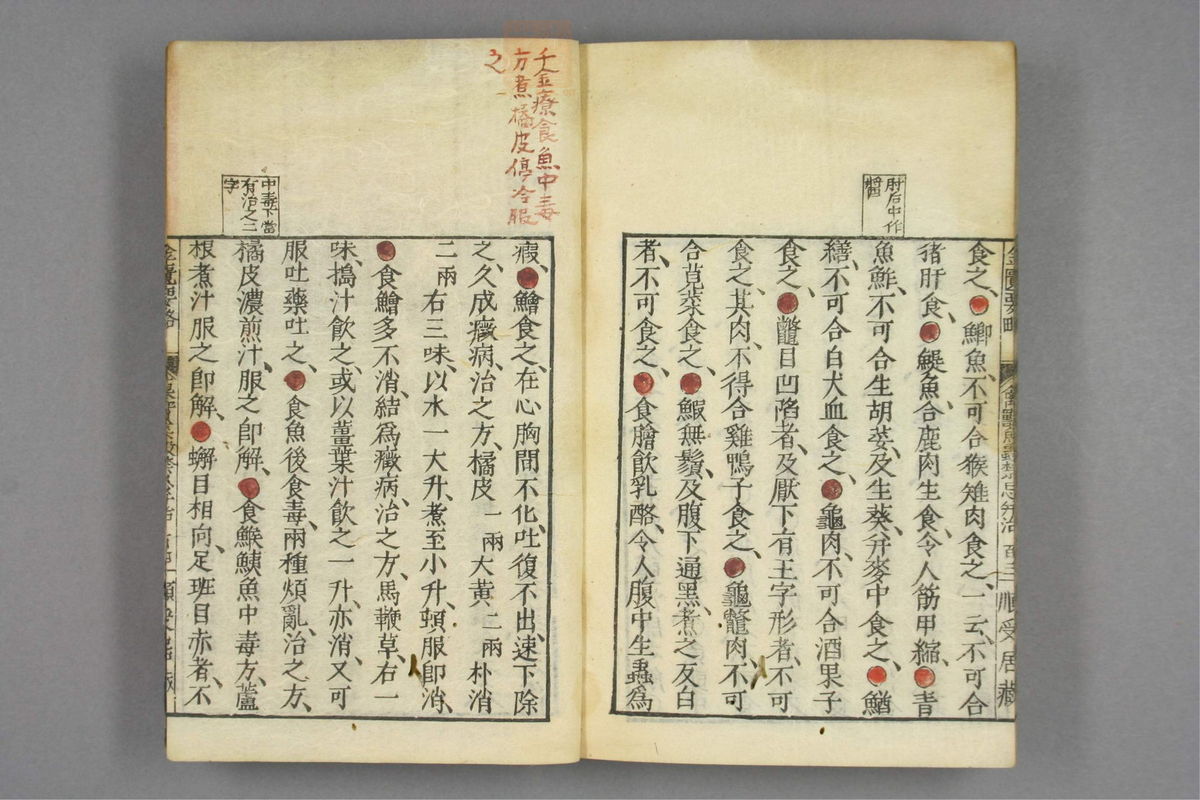 肘后中作
醬
食之、鯽魚、不可合猴雉肉食之、一云、不可合
猪肝食、鯷魚合鹿肉生食、令人筋甲縮、青
魚鮓、不可合生胡荽、及生葵、并麥中食之、鰌
鱔、不可合白犬血食之、龜肉、不可合酒果子
食之、鼈目凹陷者、及厭下有王字形者、不可
食之、其肉、不得合雞鴨子食之、龜鼈肉、不可
合莧菜食之、鰕無鬚、及腹下通黑、煮之反白
者、不可食之、食膾飲乳酪、令人腹中生蟲爲
千金療食魚中毒
方煮橘皮停冷服
之
瘕、鱠食之、在心胸間不化、吐復不出、速下除
之、久成癥病、治之方、橘皮一兩大黃二兩朴消
二兩右三味、以水一大升、煮至小升、頓服即消、
食鱠多不消、結爲癥病、治之方、馬鞭草、右一
味、搗汁飲之、或以薑葉汁飲之一升、亦消、又可
服吐藥吐之、食魚後食毒、兩種煩亂、治之方、
橘皮濃煎汁、服之即解、食鯸鮧魚中毒方、蘆
根煮汁服之即解、蠏目相向、足班目赤者、不
中毒下當
有治之二
字